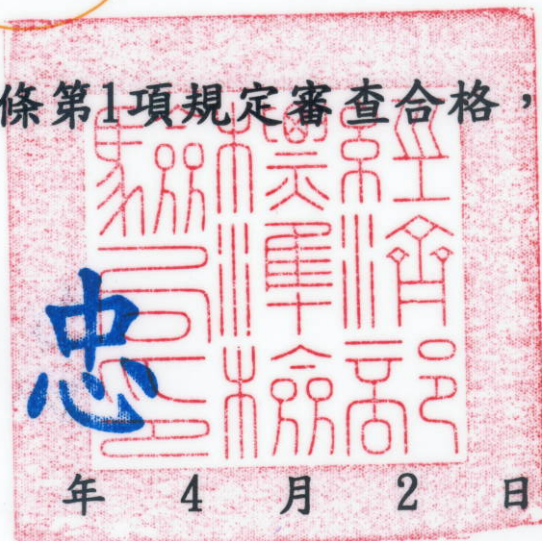 條第1項規定審查合格，
經濟部
標準檢
驗局印
忠
年 4 月 2 日